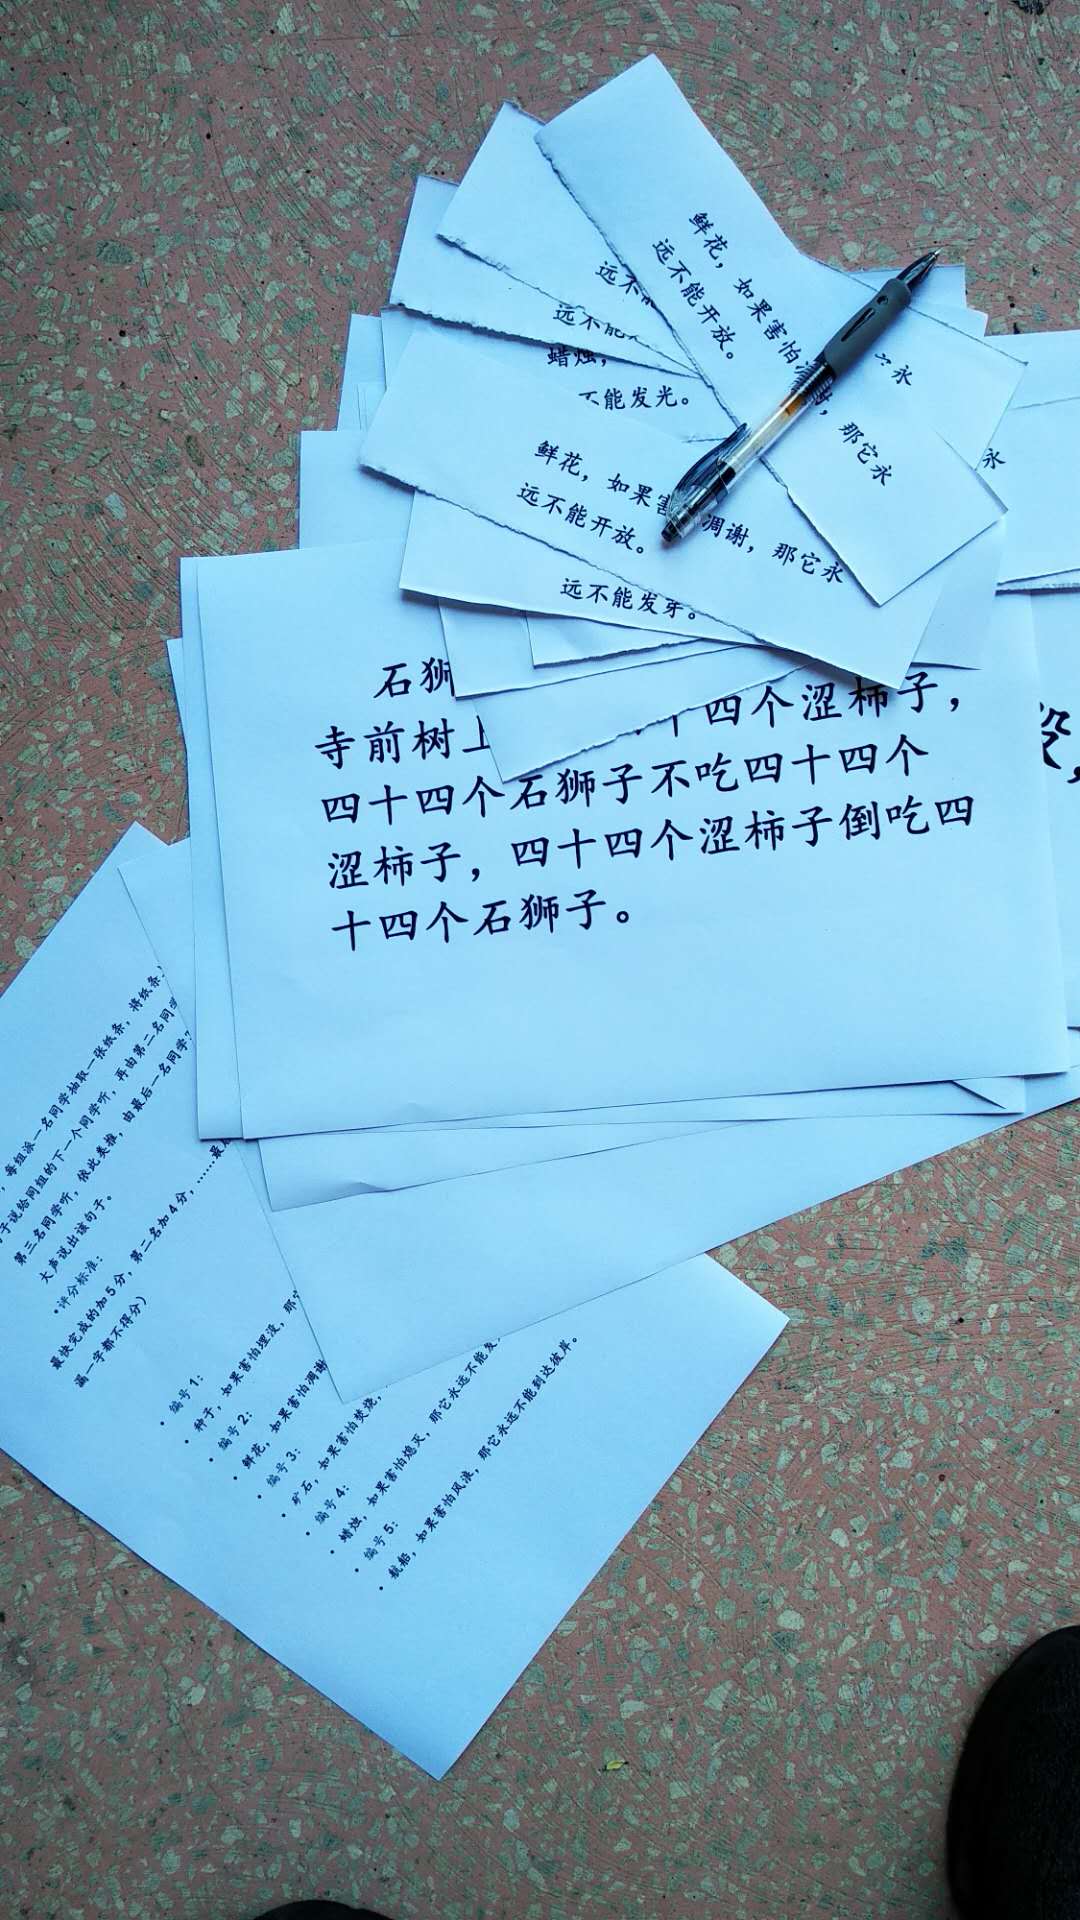 鲜花，如果害怕凋谢，那它永
远不能开放。
永
远不
远不能
蜡烛，
不能发光。
鲜花，如果害 凋谢，那它永
远不能开放。
远不能发芽。
永
石狮
寺前树上 十四个涩柿子，
四十四个石狮子不吃四十四个
涩柿子，四十四个涩柿子倒吃四
十四个石狮子。
，每组派一名同学抽取一张纸条，将纸条
子说给同组的下一个同学听，再由第二名同学
第三名同学听，依此类推，由最后一名同学
大声说出该句子。
•评分标准：
最快完成的加5分，第二名加4分，……最
漏一字都不得分）
• 编号1：
• 种子，如果害怕埋没，那
• 编号2：
• 鲜花，如果害怕凋谢
• 编号3：
• 矿石，如果害怕焚烧，
• 编号4：
• 蜡烛，如果害怕熄灭，那它永远不能发
• 编号5：
• 航船，如果害怕风浪，那它永远不能到达彼岸。